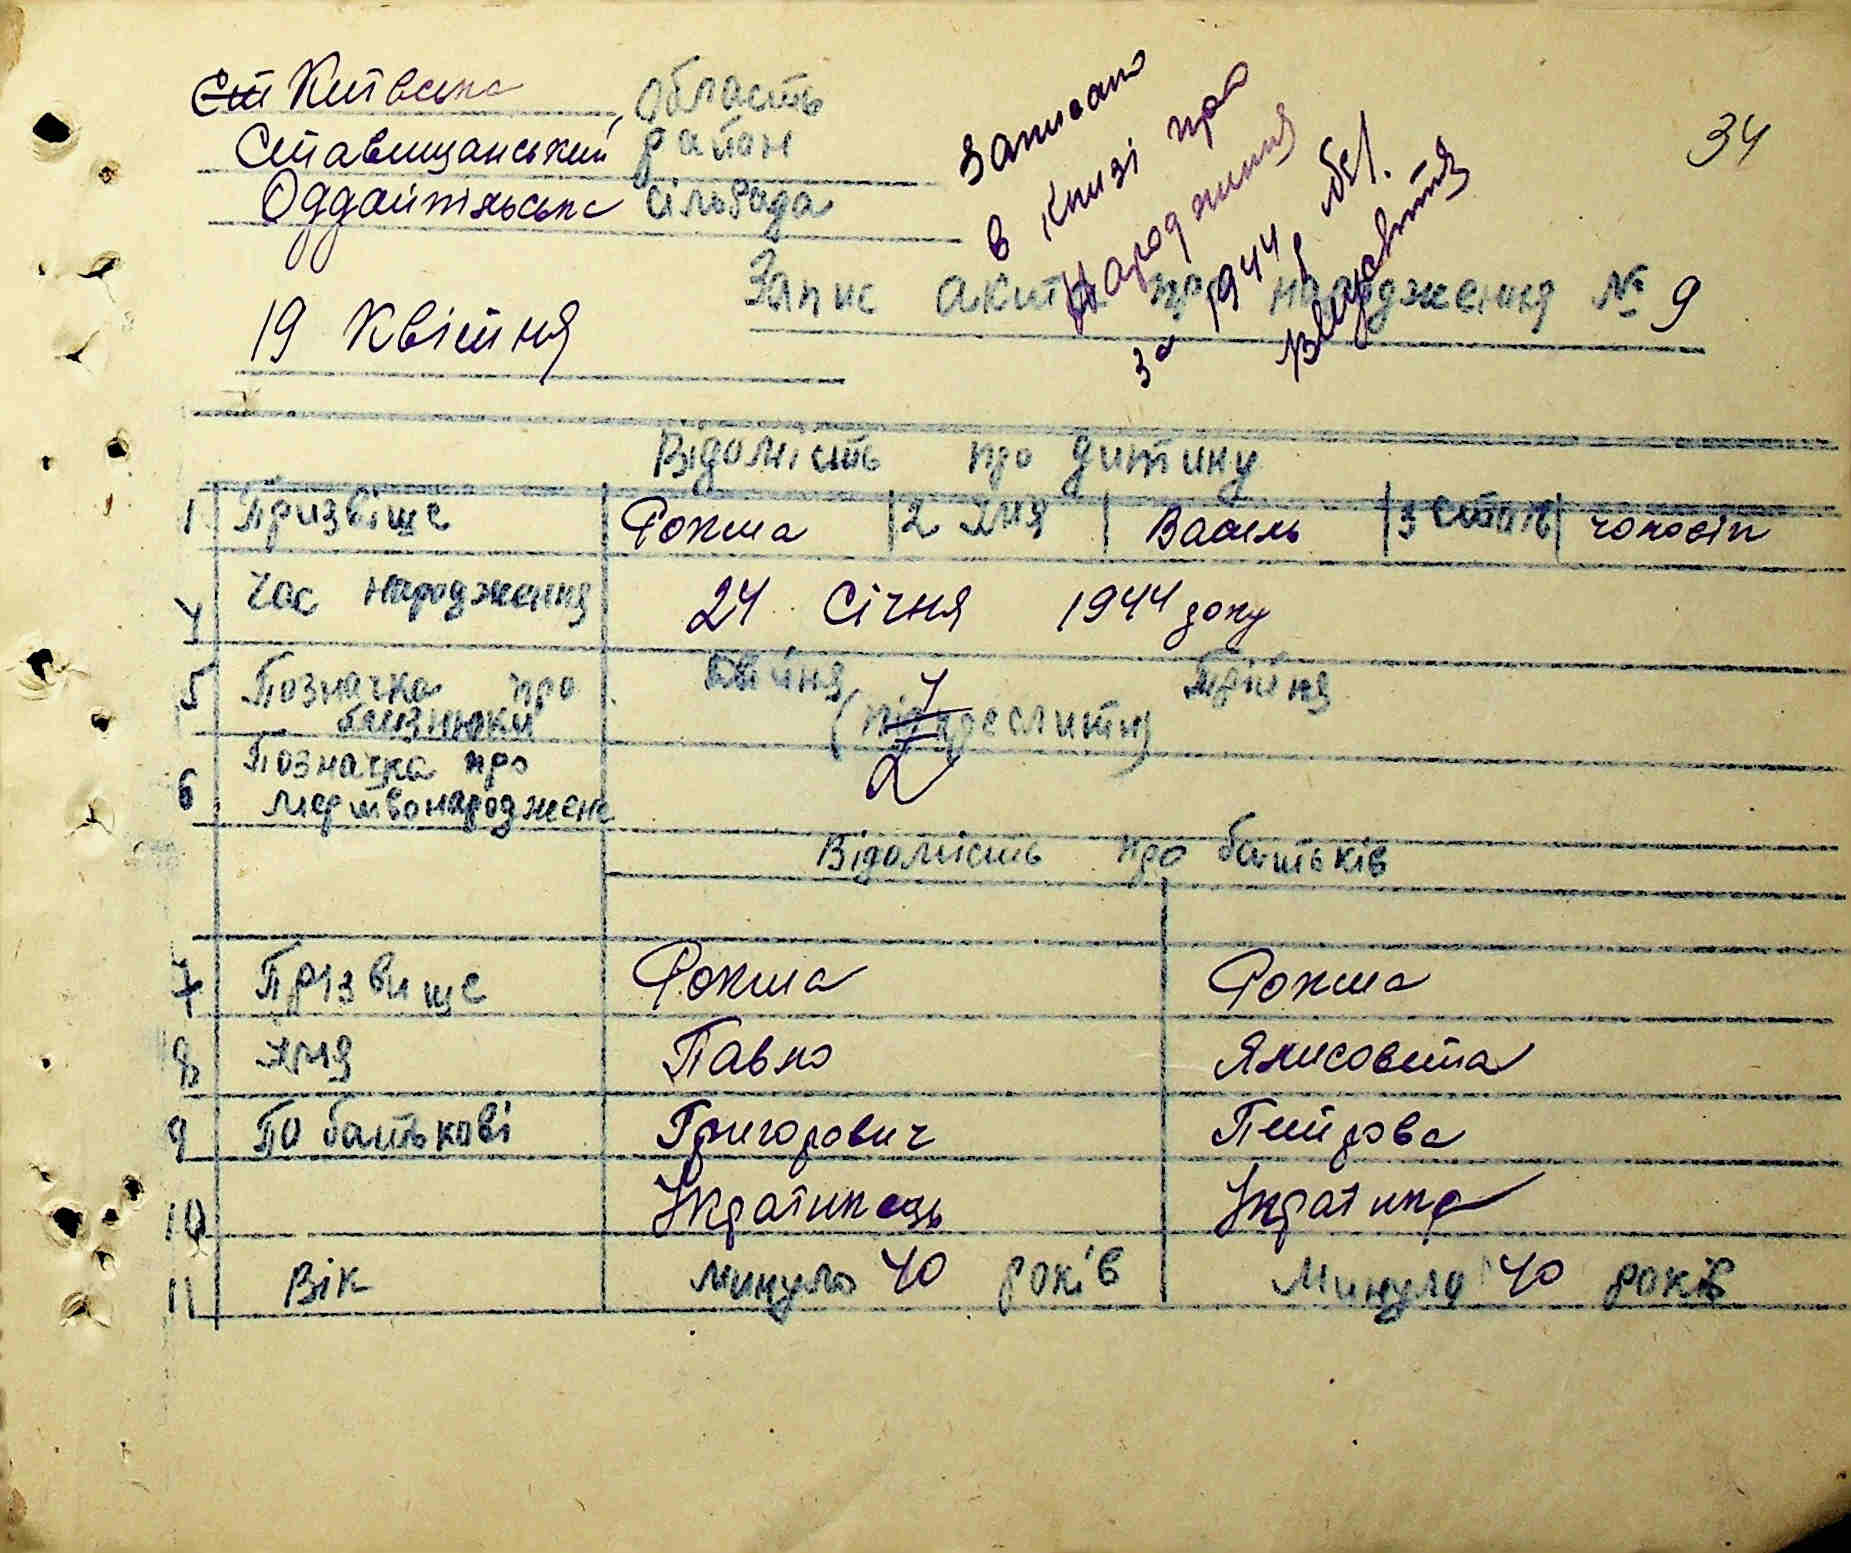 Ст Київська, область
Ставищанський район
Оддайпільська сільрада
34
Записано
в книзі про
народження
за 1944 р. без
свидоцтва
Запис акта про народження № 9
19 Квітня
Відомість про дитину
1 Призвіще Рокша 2 Імя Василь 3 Стать чоловіч
4 Час народження 24 Січня 1944 року
5 Позначка про близнюки двійня трійня
(підкреслити)
6 Позначка про
мертвонароджен
Відомість про батьків
7 Прізвище Рокша Рокша
8 Імя Павло Ялисовета
9 По батькові Григорович Петрова
10 Українець Українка
11 Вік минуло 40 років минуло 40 років